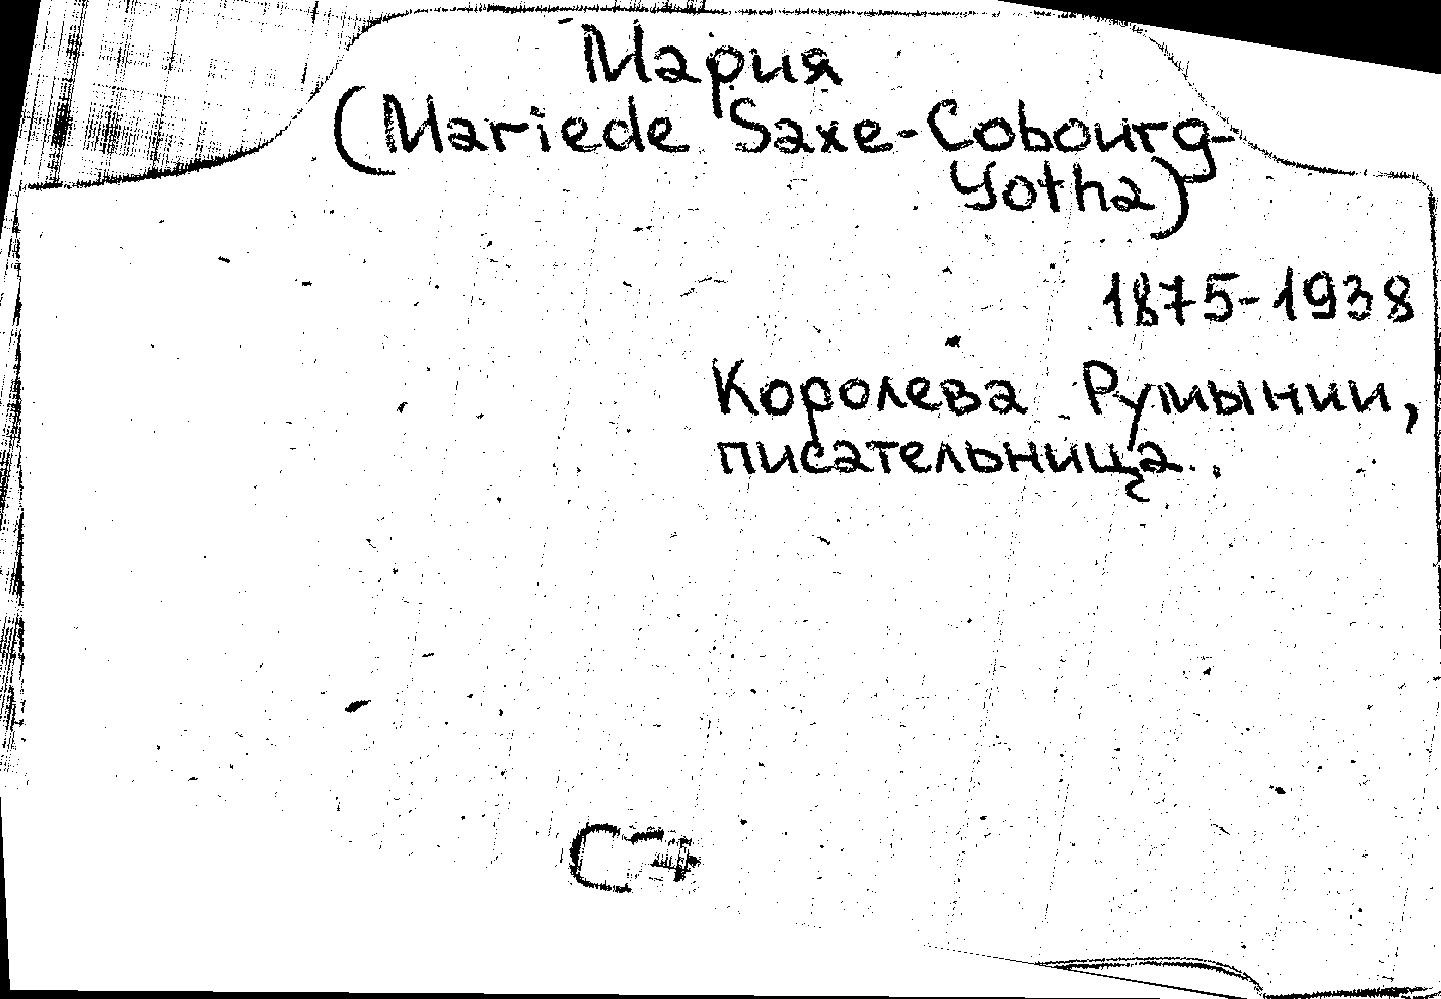 Мария
(Mariede Saxe-Cobourg-
Yotha)
1875-1938
Королева Румынии,
писательница.